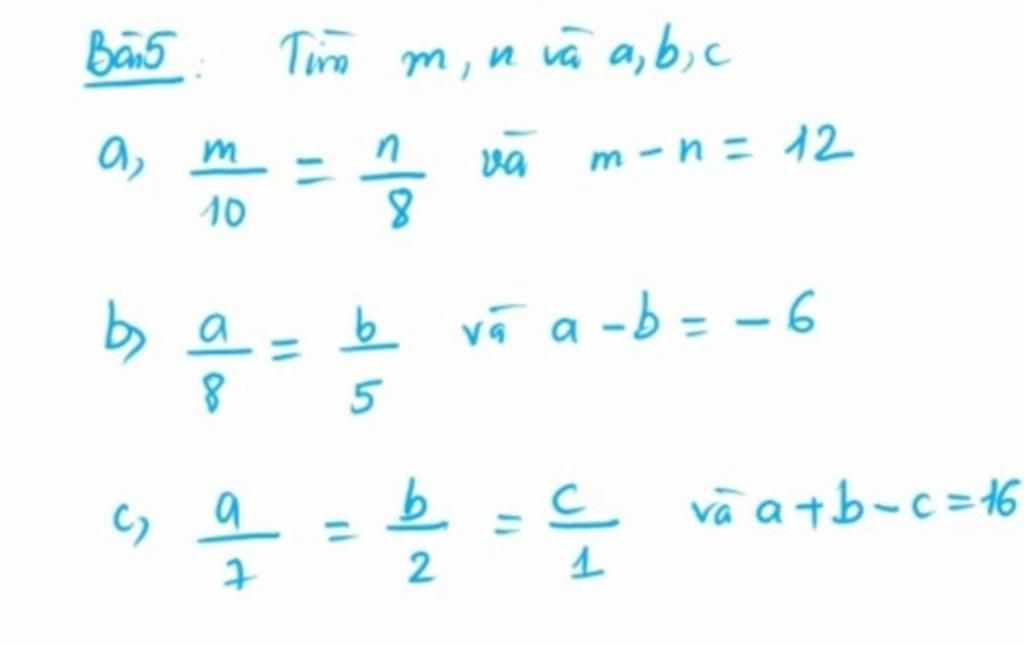 Bài 5: Tìm m, n và a, b, c
a, m/10 = n/8 và m - n = 12
b, a/8 = b/5 và a - b = - 6
c, a/7 = b/2 = c/1 và a + b - c = 16